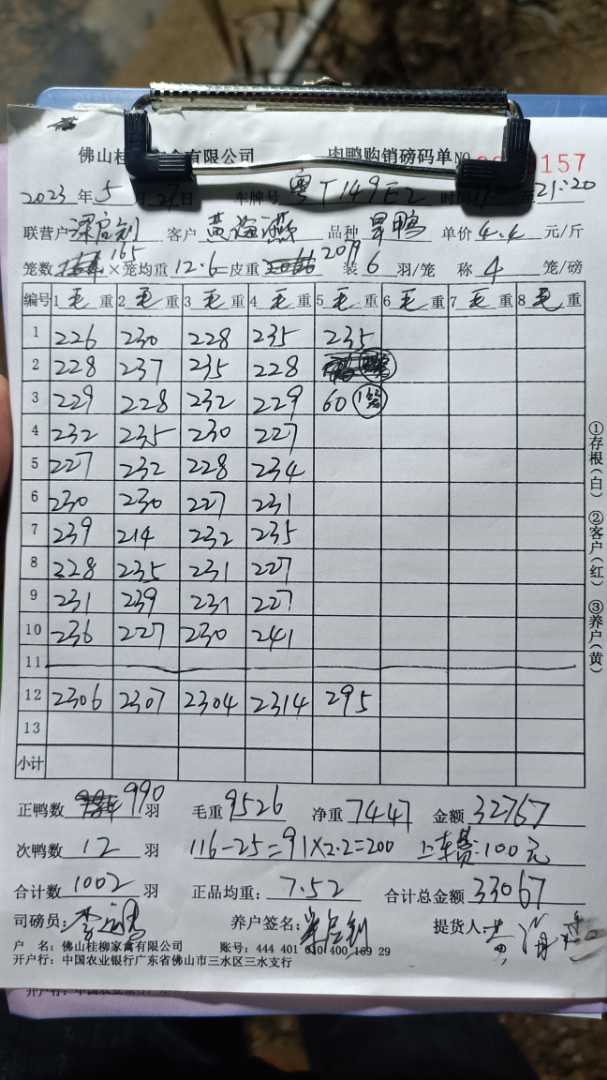 佛山桂柳 禽有限公司 肉鸭购销磅码单 NO 157
2023年5月27日 车牌号 粤T149E2 21:20
联营户 客户 黄海燕 品种 旱鸭 单价 4.4 元/斤
笼数 165 ×笼均重 12.6 皮重 2079 装 6 羽/笼 称 4 笼/磅
编号 1 毛 重 2 毛 重 3 毛 重 4 毛 重 5 毛 重 6 毛 重 7 毛 重 8 毛 重
1 226 230 228 235 235
2 228 237 235 228
3 229 228 232 229 60 1笼
4 232 235 230 227
5 227 232 228 234
6 230 230 227 231
7 239 214 232 235
8 228 235 231 227
9 231 239 231 227
10 236 227 230 241
11
12 2306 2307 2304 2314 295
13
小计
正鸭数 990 羽 毛重 9526 净重 7447 金额 32767
次鸭数 12 羽 116-25=91×2.2=200 上车费:100元
合计数 1002 羽 正品均重: 7.52 合计总金额 33067
司磅员: 养户签名: 提货人: 黄海燕
户 名: 佛山桂柳家禽有限公司 账号: 444 401 010 400 169 29
开户行: 中国农业银行广东省佛山市三水区三水支行
①存根(白) ②客户(红) ③养户(黄)